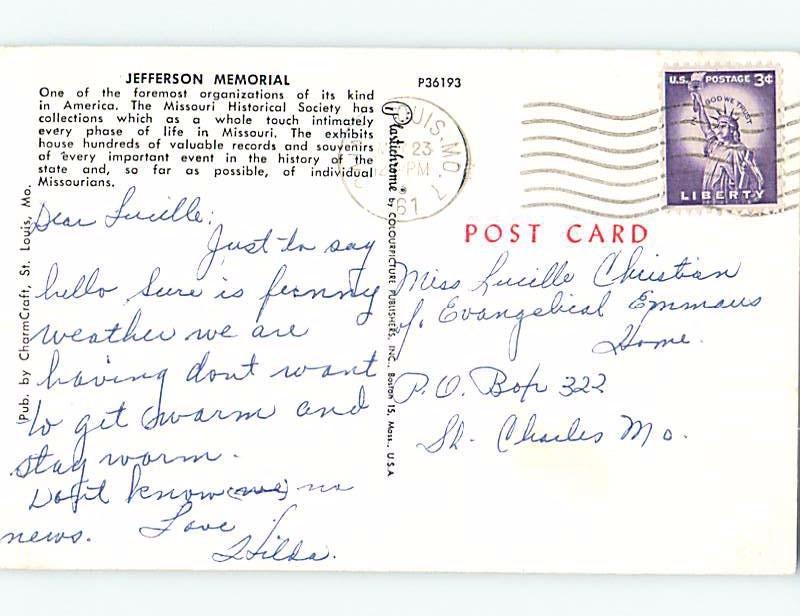 JEFFERSON MEMORIAL
One of the foremost organizations of its kind
in America. The Missouri Historical Society has
collections which as a whole touch intimately
every phase of life in Missouri. The exhibits
house hundreds of valuable records and souvenirs
of every important event in the history of the
state and, so far as possible, of individual
Missourians.
Dear Lucille:
Just to say
hello Sure is funny
weather we are
having dont want
to get warm and
stay worm.
Dont know no
news. Love
Hilda.
Pub. by CharmCraft, St. Louis, Mo.
P36193
Plastichrome ® by COLOURPICTURE PUBLISHERS, INC., Boston 15, Mass., U.S.A
LOUIS, MO. 7
23
PM
61
U.S. POSTAGE 3¢
IN GOD WE TRUST
LIBERTY
POST CARD
Miss Lucille Christian
Evangelical Emmaus
Home.
P.O. Box 322
St. Charles Mo.